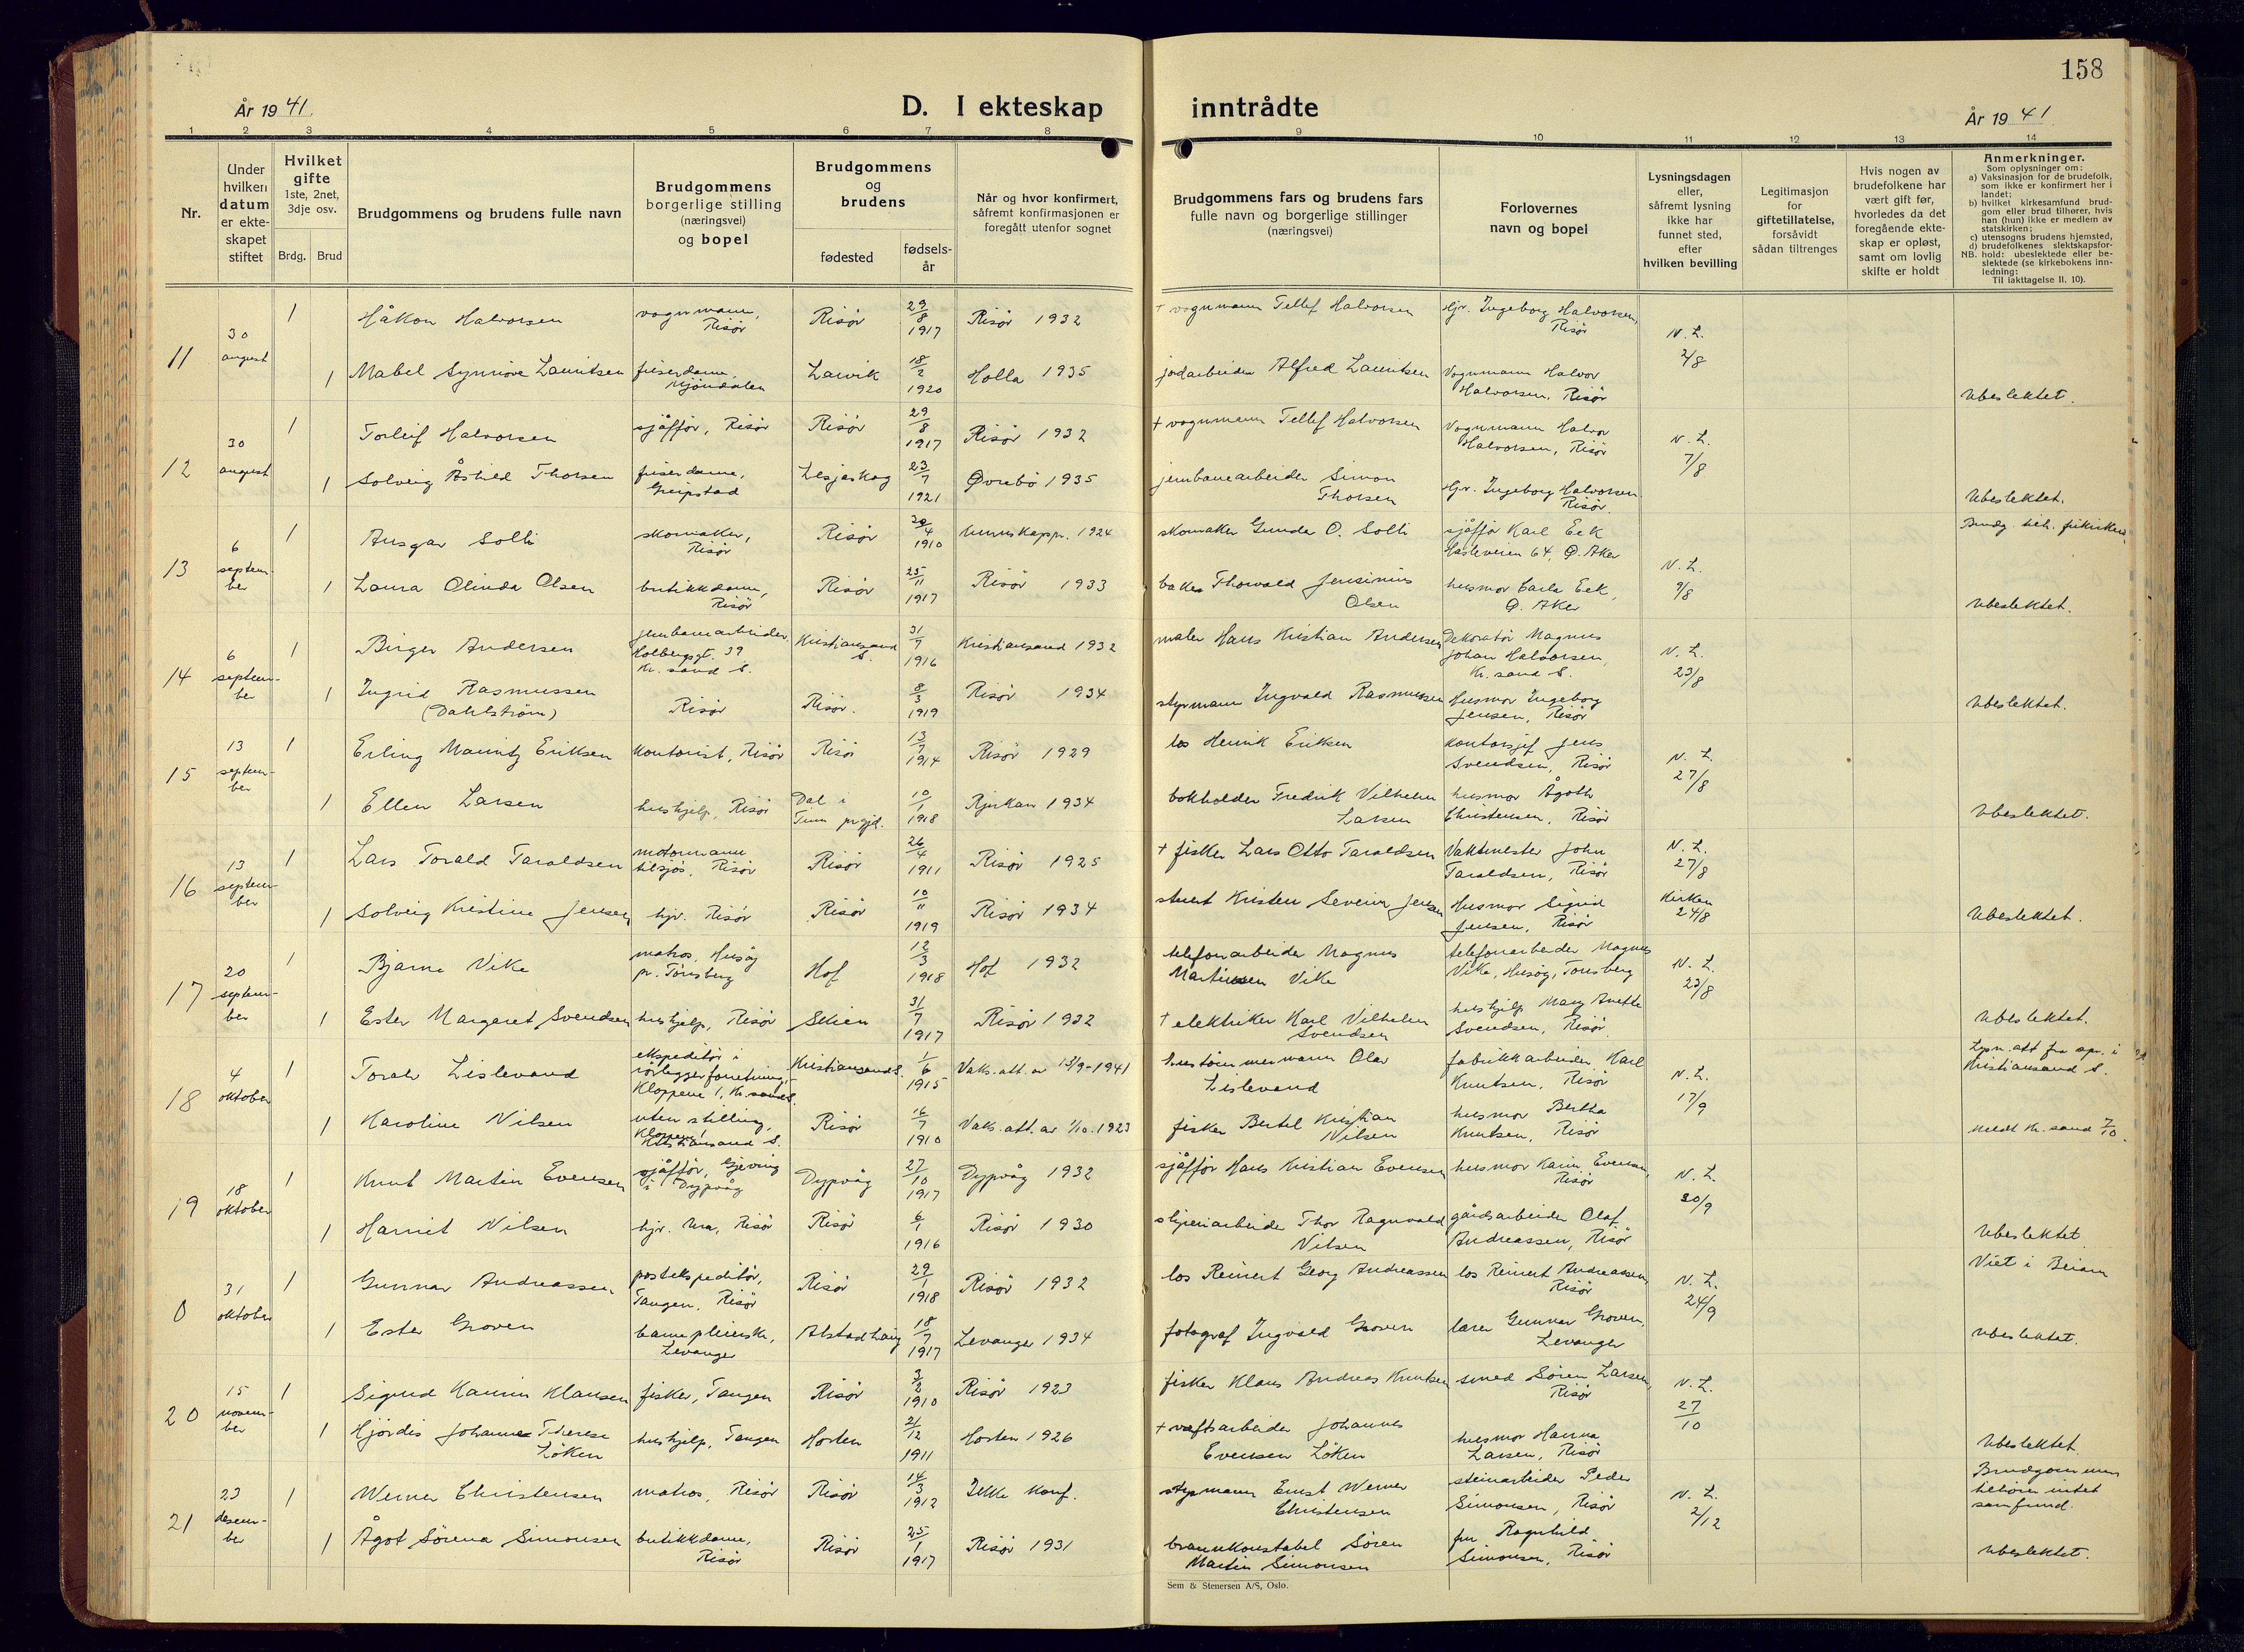 158
År 1941.
D. I ekteskap
inntrådte
År 1941
1 2 3 4 5 6 7 8 9 10 11 12 13 14
Nr.
Under
hvilken
datum
er ekte-
skapet
stiftet
Hvilket
gifte
1ste, 2net,
3dje osv.
Brdg. Brud
Brudgommens og brudens fulle navn
Brudgommens
borgerlige stilling
(næringsvei)
og bopel
Brudgommens
og
brudens
fødested
fødsels-
år
Når og hvor konfirmert,
såfremt konfirmasjonen er
foregått utenfor sognet
Brudgommens fars og brudens fars
fulle navn og borgerlige stillinger
(næringsvei)
Forlovernes
navn og bopel
Lysningsdagen
eller,
såfremt lysning
ikke har
funnet sted,
efter
hvilken bevilling
Legitimasjon
for
giftetillatelse,
forsåvidt
sådan tiltrenges
Hvis nogen av
brudefolkene har
vært gift før,
hvorledes da det
foregående ekte-
skap er opløst,
samt om lovlig
skifte er holdt
Anmerkninger.
Som oplysninger om:
a) Vaksinasjon for de brudefolk,
som ikke er konfirmert her i
landet;
b) hvilket kirkesamfund brud-
gom eller brud tilhører, hvis
han (hun) ikke er medlem av
statskirken;
c) utensogns brudens hjemsted,
d) brudefolkenes slektskapsfor-
NB. hold: ubeslektede eller be-
slektede (se kirkebokens inn-
ledning:
Til iakttagelse II. 10).
11
30
august
1 Håkon Halvorsen
vognmann,
Risør
Risør
29/8
1917
Risør 1932
† vognmann Tellef Halvorsen
Hjv. Ingeborg Halvorsen,
Risør
N. L.
2/8
1 Mabel Synnøve Lauritsen
friserdame,
Mjøndalen
Larvik
18/2
1920
Holla 1935
jordarbeider Alfred Lauritsen
Vognmann Halvor
Halvorsen, Risør
Ubeslektet.
12
30
august
1 Torleif Halvorsen
sjåffør, Risør
Risør
29/8
1917
Risør 1932
† vognmann Tellef Halvorsen
Vognmann Halvor
Halvorsen, Risør
N. L.
7/8
1 Solveig Åshild Thorsen
friserdame,
Greipstad
Lesjaskog
23/7
1921
Øvrebø 1935
jernbanearbeider Simon
Thorsen
Hjv. Ingeborg Halvorsen
Risør.
Ubeslektet.
13
6
septem-
ber
1 Ansgar Solli
skomaker,
Risør
Risør
30/4
1910
1924
skomaker Gunder O. Solli
sjåffør Karl Eek
Hasleveien 64, Ø. Aker
N. L.
9/8
Brudg. tilh. frikirken.
1 Laura Olinda Olsen
butikkdame,
Risør
Risør
25/11
1917
Risør 1933
baker Thorvald Jensinius
Olsen
husmor Carla Eek,
Ø. Aker
Ubeslektet.
14
6
septem-
ber
1 Birger Andersen
jernbanearbeider.
Holbergsgt. 39
Kr. sand S.
Kristiansand
S.
31/7
1916
Kristiansand 1932
maler Hans Kristian Andersen
Dekoratør Magnus
Johan Halvorsen,
Kr. sand S.
N. L.
23/8
1 Ingrid Rasmussen
(Dahlstrøm)
Risør
Risør.
8/3
1919
Risør 1934
styrmann Ingvald Rasmussen
Husmor Ingeborg
Jensen, Risør
Ubeslektet.
15
13
septem-
ber
1 Erling Mauritz Eriksen
kontorist, Risør
Risør
13/7
1914
Risør 1929
los Henrik Eriksen
kontorsjef Jens
Svendsen, Risør
N. L.
27/8
1 Ellen Larsen
hushjelp, Risør
Dal i
Tinn prgjd.
10/1
1918
Rjukan 1934
bokholder Fredrik Vilhelm
Larsen
husmor Ågoth
Christensen, Risør
Ubeslektet.
16
13
septem-
ber
1 Lars Torald Taraldsen
motormann
tilsjøs, Risør
Risør
26/4
1911
Risør 1925
† fisker Lars Otto Taraldsen
Vaktmester John
Taraldsen, Risør
N. L.
27/8
1 Solveig Kristine Jensen
hjv. Risør
Risør
10/11
1919
Risør 1934
stuert Kristen Severin Jensen
Husmor Sigrid
Jensen, Risør
Kirken
24/8
Ubeslektet.
17
20
septem-
ber
1 Bjarne Vike
matros, Husøy
pr. Tønsberg
Hof
12/3
1918
Hof 1932
telefonarbeider Magnus
Martinsen Vike
telefonarbeider Magnus
Vike, Husøy, Tønsberg
N. L.
23/8
1 Ester Margaret Svendsen
hushjelp, Risør
Skien
31/7
1917
Risør 1932
† elektriker Karl Vilhelm
Svendsen
hushjelp Mary Anette
Svendsen, Risør.
Ubeslektet.
18
4
oktober
1 Toralv Lislevand
ekspeditør i
rørleggerforretning,
Kloppene 1, Kr. sand S.
Kristiansand S.
1/6
1915
Vaks. att. av 13/9-1941
hustømmermann Olav
Lislevand
fabrikkarbeider Karl
Knutsen, Risør
N. L.
17/9
Lysn. att. fra spr. i
Kristiansand S.
1 Karoline Nilsen
uten stilling,
Kloppene 1
Kristiansand S.
Risør
16/7
1910
Vaks. att. av 1/10. 1923
fisker Bertel Kristian
Nilsen
husmor Bertha
Knutsen, Risør
Meldt Kr. sand 7/10.
19
18
oktober
1 Knut Martin Evensen
sjåffør, Gjeving
i Dypvåg
Dypvåg
27/10
1917
Dypvåg 1932
sjåffør Hans Kristian Evensen
husmor Karin Evensen,
Risør
N. L.
20/9
1 Harriet Nilsen
hjv. Ura, Risør
Risør
6/1
1916
Risør 1930
sliperiarbeider Thor Ragnvald
Nilsen
gårdsarbeider Olaf
Andreassen, Risør
Ubeslektet
0
31
oktober
1 Gunnar Andreassen,
postekspeditør,
Tangen, Risør
Risør
29/1
1918
Risør 1932
los Reinert Georg Andreassen
los Reinert Andreassen,
Risør
N. L.
24/9
Viet i Beiarn
1 Ester Groven
barnepleierske,
Levanger
Alstadhaug
18/7
1917
Levanger 1934
fotograf Ingvald Groven
lærer Gunnar Groven,
Levanger
Ubeslektet.
20
15
novem-
ber
1 Sigurd Kamin Klausen
fisker, Tangen
Risør
3/2
1910
Risør 1923
fisker Klaus Andreas Knutsen
smed Søren Larsen,
Risør
N. L.
27/10
1 Hjørdis Johanne Therese
Løken
hushjelp, Tangen
Horten
21/12
1911
Horten 1926
† verftsarbeider Johannes
Evensen Løken
husmor Hanna
Larsen, Risør
Ubeslektet.
21
23
desem-
ber
1 Werner Christensen
matros, Risør
Risør
14/3
1912
Ikke konf.
styrmann Ernst Werner
Christensen
steinarbeider Peder
Simonsen, Risør
N. L.
2/12
Brudgommen
tilhører intet
samfund.
1 Ågot Sørena Simonsen
butikkdame,
Risør
Risør
25/1
1917
Risør 1931
brannkonstabel Søren
Martin Simonsen
fru Ragnhild
Simonsen, Risør
Ubeslektet.
Sem & Stenersen A/S, Oslo.